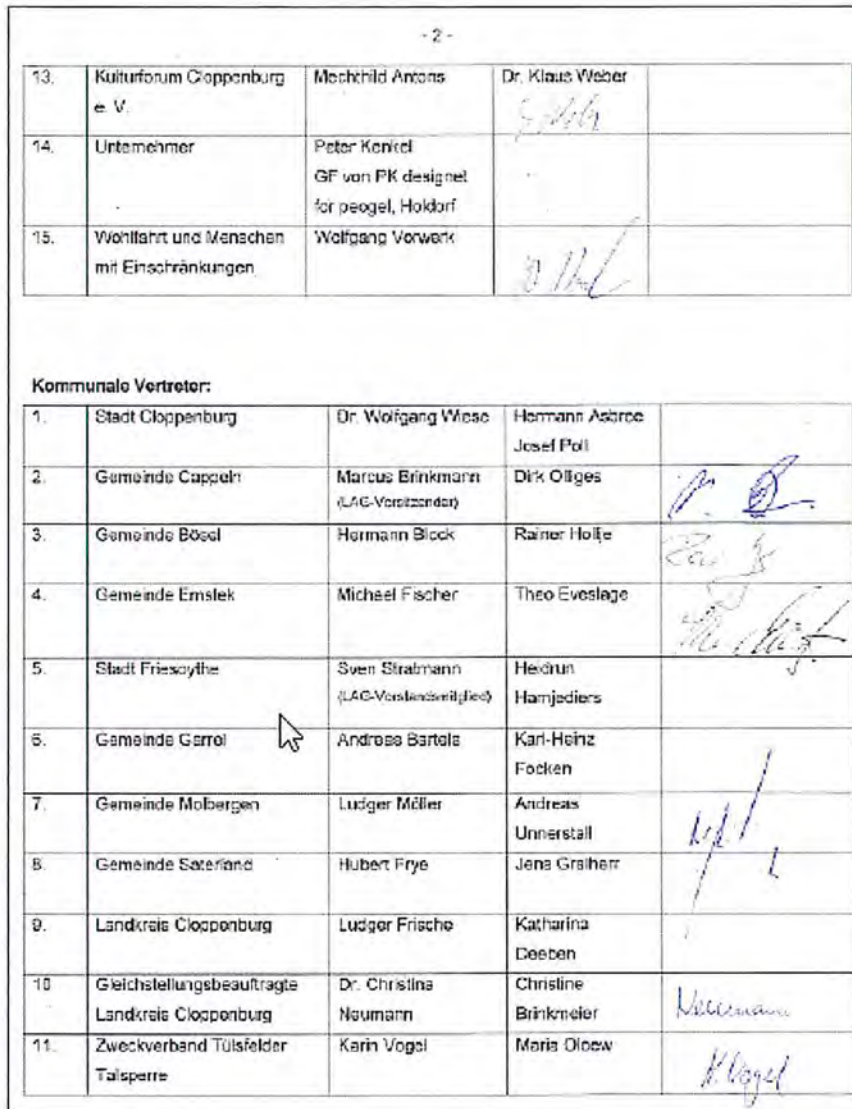 - 2 -
13. Kulturforum Cloppenburg Mechthild Antons Dr. Klaus Weber
e. V.
14. Unternehmer Peter Kenkel
GF von PK designet
for peogel, Holdorf
15. Wohlfahrt und Menschen Wolfgang Vorwerk
mit Einschränkungen
Kommunale Vertreter:
1. Stadt Cloppenburg Dr. Wolfgang Wiese Hermann Asbree
Josef Poll
2. Gemeinde Cappeln Marcus Brinkmann Dirk Olliges
(LAG-Vorsitzender)
3. Gemeinde Bösel Hermann Block Rainer Hollje
4. Gemeinde Emstek Michael Fischer Theo Eveslage
5. Stadt Friesoythe Sven Stratmann Heidrun
(LAG-Vorstandsmitglied) Hamjediers
6. Gemeinde Garrel Andreas Bartels Karl-Heinz
Focken
7. Gemeinde Molbergen Ludger Möller Andreas
Unnerstall
8. Gemeinde Saterland Hubert Frye Jens Gralherr
9. Landkreis Cloppenburg Ludger Frische Katharina
Deeben
10 Gleichstellungsbeauftragte Dr. Christina Christine
Landkreis Cloppenburg Neumann Brinkmeier Neumann
11. Zweckverband Tülsfelder Karin Vogel Maria Oloew
Talsperre K. Vogel